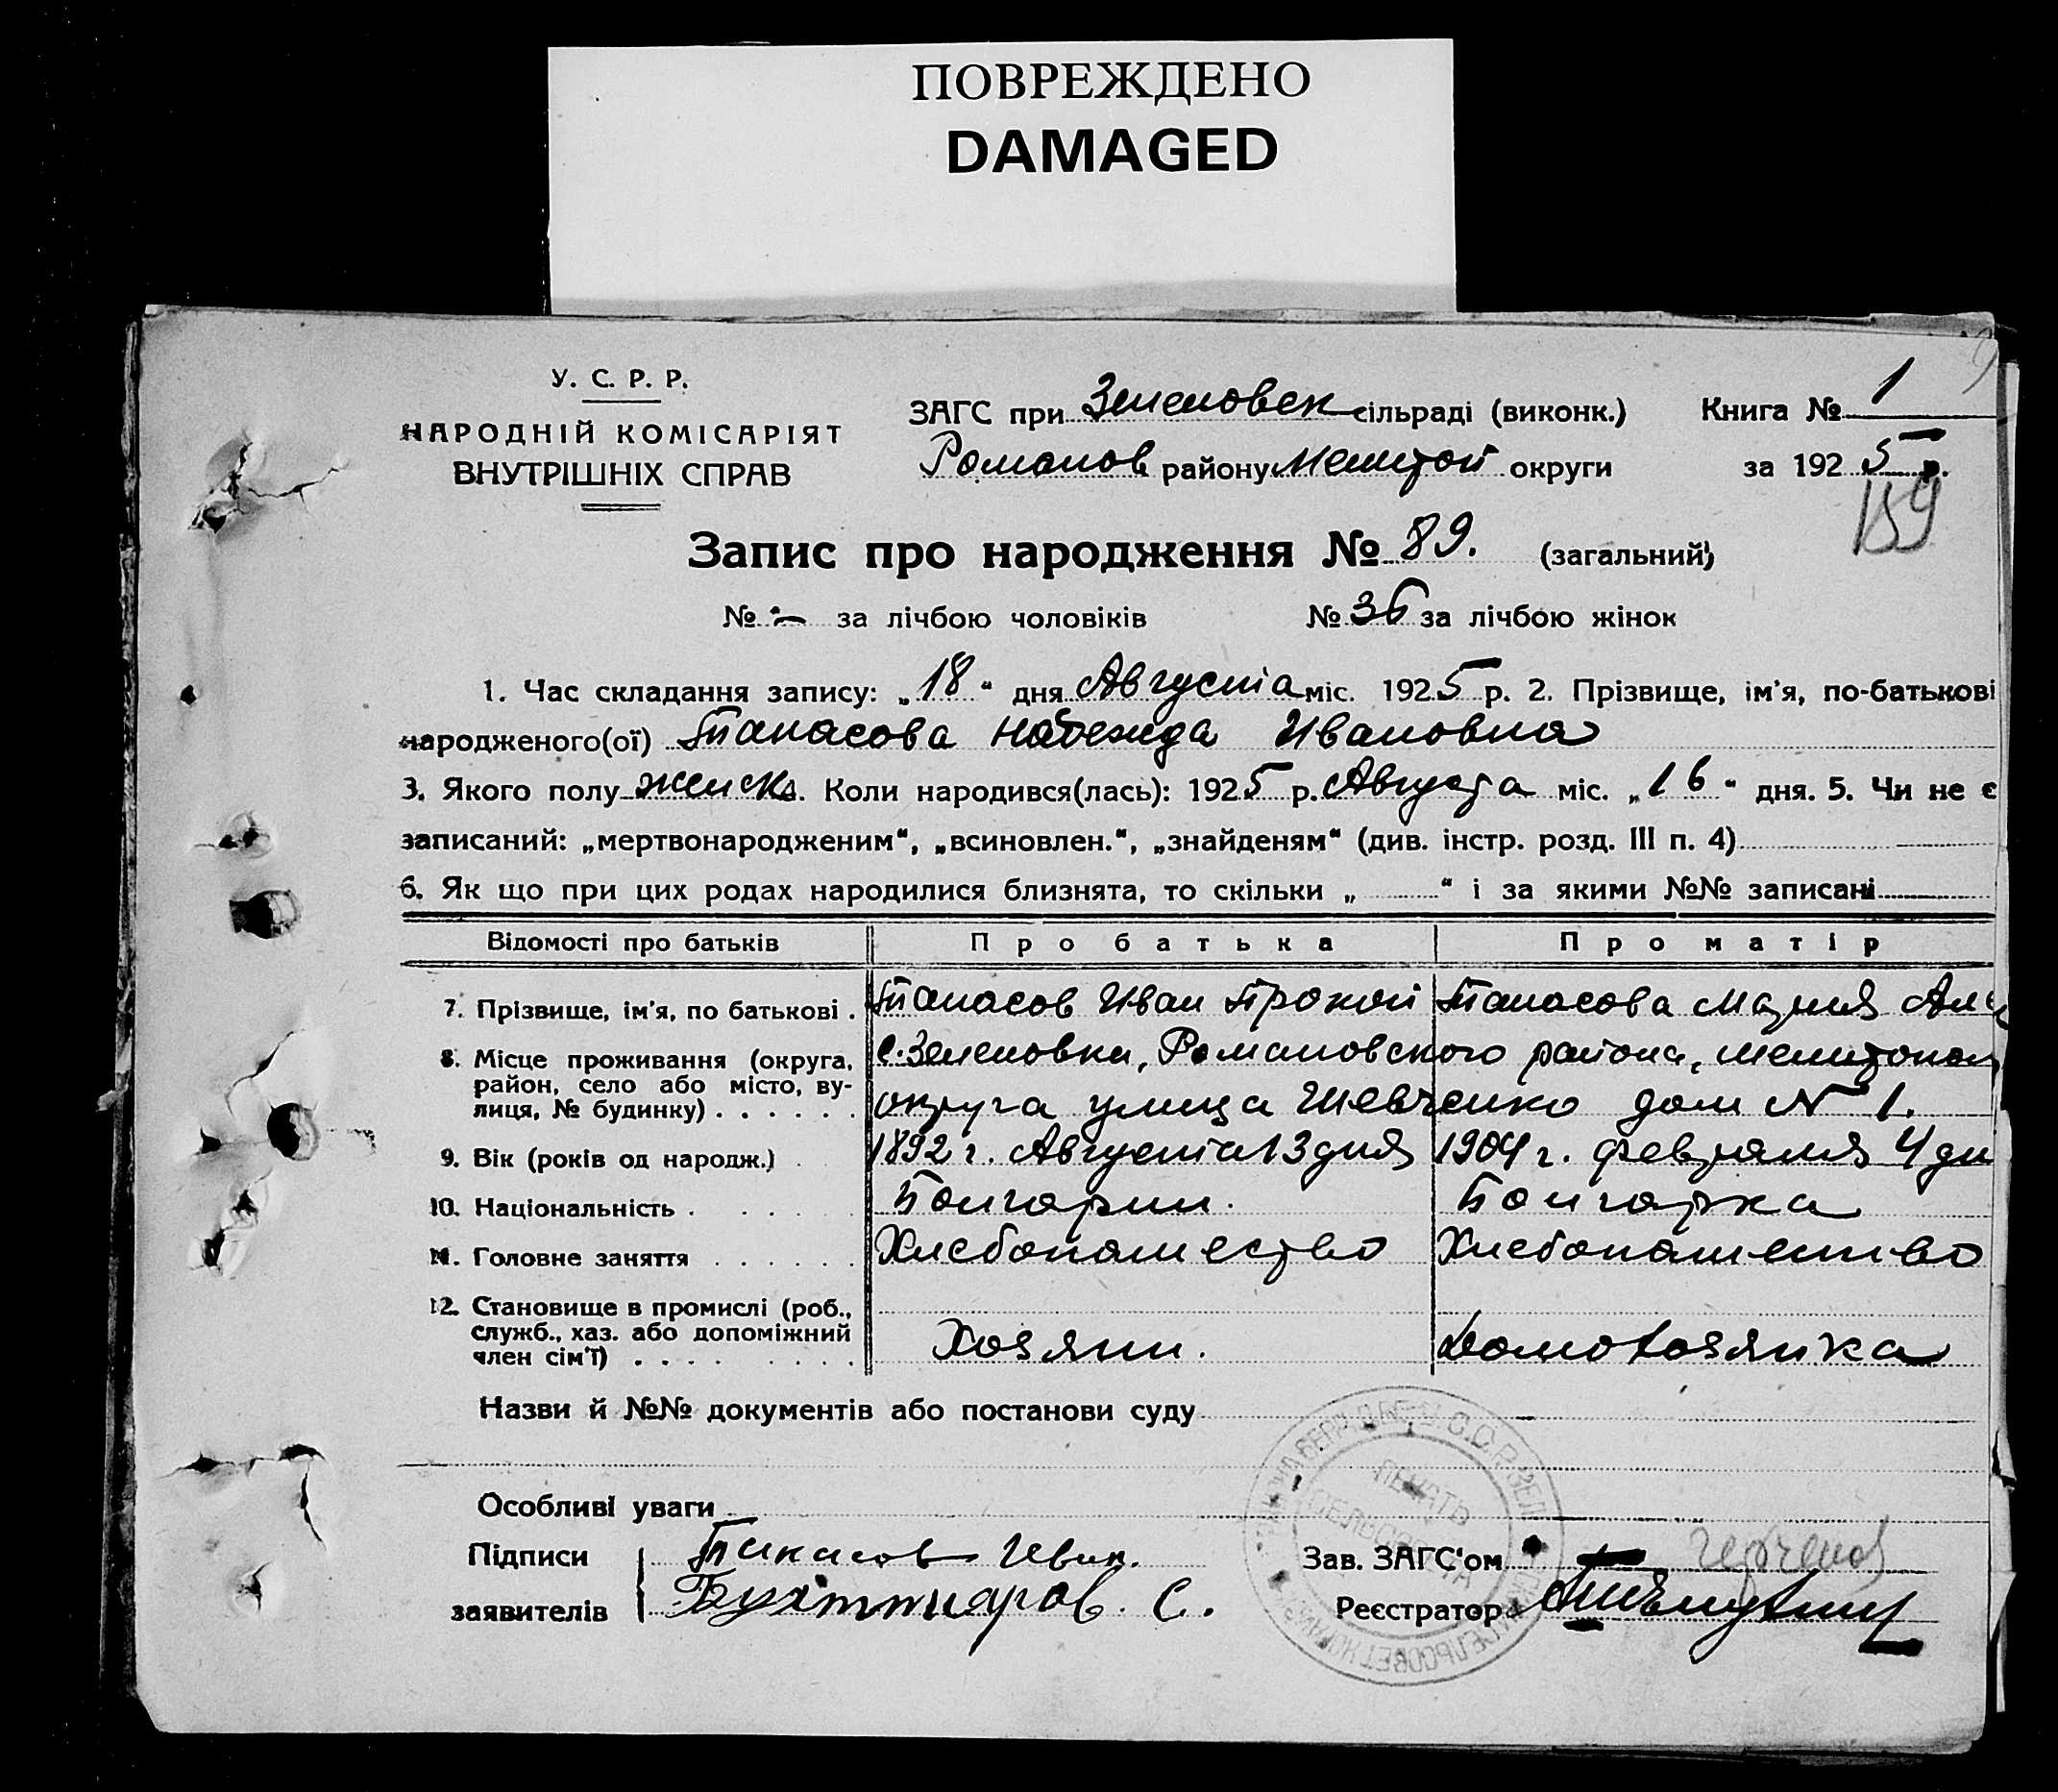 ПОВРЕЖДЕНО
DAMAGED
У. С. Р. Р.
НАРОДНІЙ КОМІСАРІЯТ
ВНУТРІШНІХ СПРАВ
ЗАГС при Зеленовск сільраді (виконк.) Книга № 1
Романов району Мелитоп округи за 1925 р.
159
Запис про народження № 89. (загальний)
№ - за лічбою чоловіків № 36 за лічбою жінок
1. Час складання запису: „18“ дня Августа міс. 1925 р. 2. Прізвище, ім'я, по-батькові
народженого(ої) Танасова Надежда Ивановна
3. Якого полу женск. Коли народився(лась): 1925 р. Августа міс. „16“ дня. 5. Чи не є
записаний: „мертвонародженим“, „всиновлен.“, „знайденям“ (див. інстр. розд. III п. 4)
6. Як що при цих родах народилися близнята, то скільки „ “ і за якими №№ записані
Відомості про батьків Про батька Про матір
7. Прізвище, ім'я, по батькові . Танасов Иван Прокоп Танасова Мария
8. Місце проживання (округа, с. Зеленовки, Романовского района, Мелитопол
район, село або місто, ву-
лиця, № будинку) округа улица Шевченко дом № 1.
9. Вік (років од народж.) 1892 г. Августа 13 дня 1904 г. февраля 4 дн
10. Національність . Болгарин. Болгарка
11. Головне заняття Хлебопашество Хлебопашество
12. Становище в промислі (роб.,
служб., хаз. або допоміжний
член сім'ї) Хозяин. Домохозяйка
Назви й №№ документів або постанови суду
Особливі уваги
ПЕЧАТЬ
СЕЛЬСОВЕТА
Підписи Танасов Иван. Зав. ЗАГС'ом
заявителів С. Реєстратор